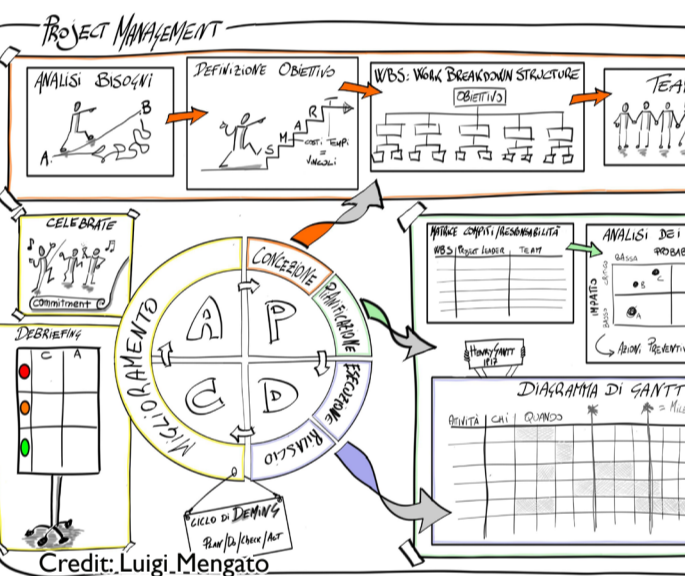 PROJECT MANAGEMENT
ANALISI BISOGNI
A
B
DEFINIZIONE OBIETTIVO
S
M
A
R
T
COSTI TEMPI
=
VINCOLI
WBS: WORK BREAKDOWN STRUCTURE
OBIETTIVO
TEA
CELEBRATE
COMMITMENT
DEBRIEFING
C A
CONCEZIONE
PIANIFICAZIONE
ESECUZIONE
RILASCIO
MIGLIORAMENTO
A P
C D
CICLO DI DEMING
PLAN/DO/CHECK/ACT
MATRICE COMPITI/RESPONSABILITÀ
WBS PROJECT LEADER TEAM
ANALISI DEI
PROBAB
BASSA
IMPATTO
CRITICO
BASSO
B
C
A
AZIONI PREVENTIV
HENRY GANTT
1917
DIAGRAMMA DI GANTT
= MILE
ATTIVITÀ CHI QUANDO
Credit: Luigi Mengato